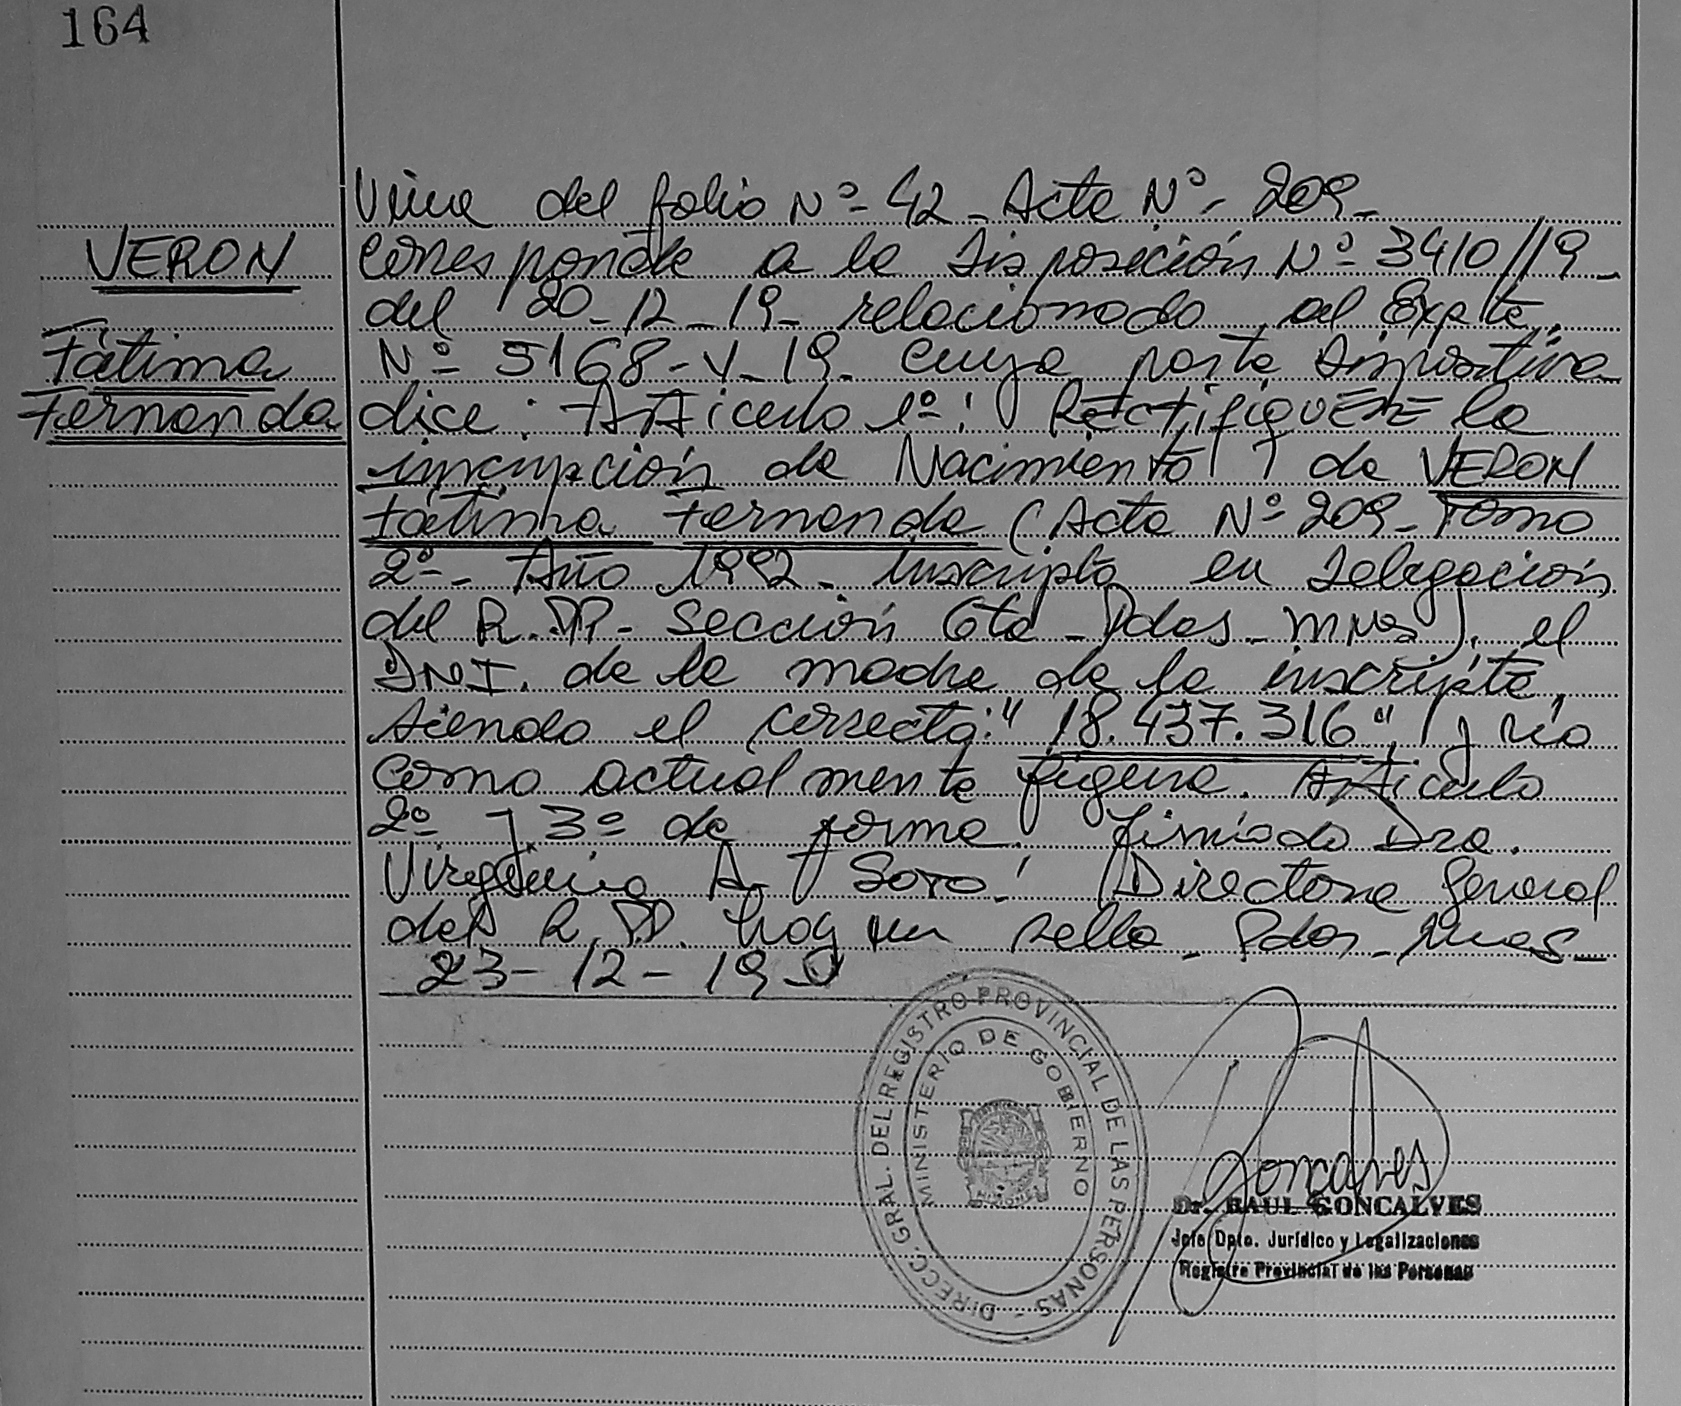 164
VERON
Fátima
Fernanda
Viene del folio Nº- 42 - Acta Nº - 209 -
Corresponde a la Disposición Nº 3410//19 -
del 20-12-19 - relacionado al Expte.
Nº 5168-V-19 - cuya parte dispositiva
dice: Artículo 1º: Rectifíquese la
inscripción de Nacimiento de VERON
Fátima Fernanda (Acta Nº 209 - Tomo
2º - Año 1992 - inscripta en Delegación
del R.PP. - Sección 6ta - Pdas - Mnes), el
DNI. de la madre de la inscripta,
siendo el correcto: "18.437.316", y no
como actualmente figura. Artículo
2º y 3º de forma. Firmado Dra.
Virginia A. Soto. Directora General
del R.PP. hay un sello. Pdas - Mnes -
23-12-19
DIRECC. GRAL. DEL REGISTRO PROVINCIAL DE LAS PERSONAS -
MINISTERIO DE GOBIERNO
MISIONES
Goncalves
Dr. RAUL GONCALVES
Jefe Dpto. Jurídico y Legalizaciones
Registro Provincial de las Personas